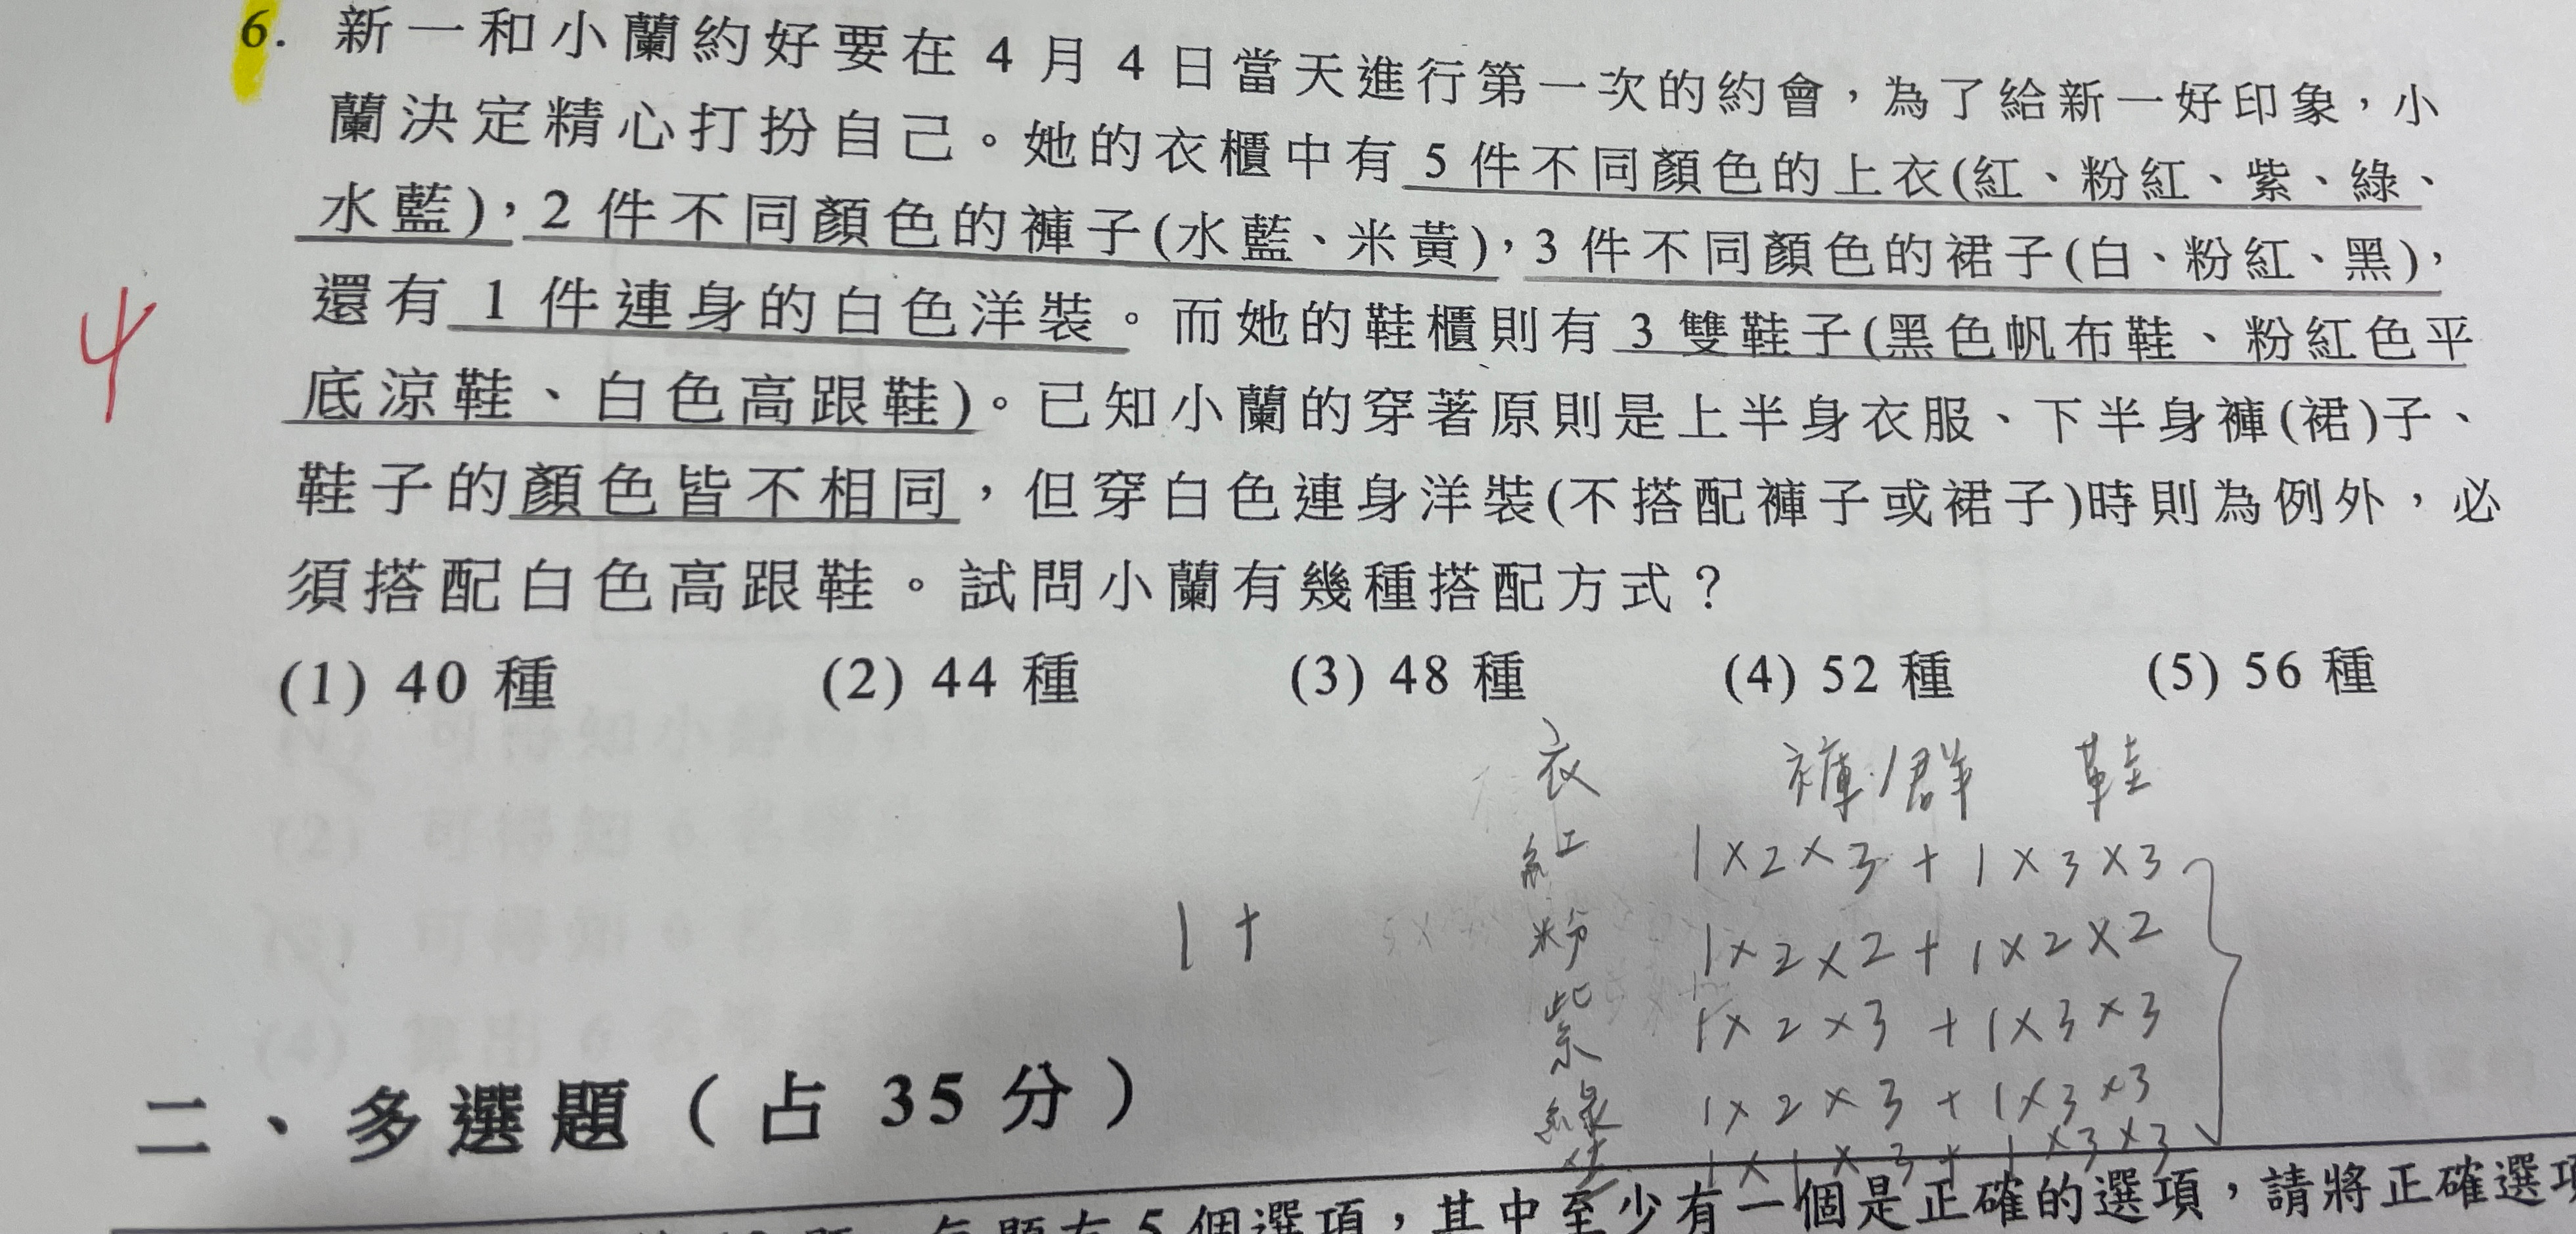 6. 新一和小蘭約好要在 4 月 4 日當天進行第一次的約會，為了給新一好印象，小
蘭決定精心打扮自己。她的衣櫃中有 5 件不同顏色的上衣(紅、粉紅、紫、綠、
水藍)，2 件不同顏色的褲子(水藍、米黃)，3 件不同顏色的裙子(白、粉紅、黑)，
還有 1 件連身的白色洋裝。而她的鞋櫃則有 3 雙鞋子(黑色帆布鞋、粉紅色平
底涼鞋、白色高跟鞋)。已知小蘭的穿著原則是上半身衣服、下半身褲(裙)子、
鞋子的顏色皆不相同，但穿白色連身洋裝(不搭配褲子或裙子)時則為例外，必
須搭配白色高跟鞋。試問小蘭有幾種搭配方式？
4
(1) 40 種 (2) 44 種 (3) 48 種 (4) 52 種 (5) 56 種
衣 褲/裙 鞋
紅 1×2×3 + 1×3×3
1 + 粉 1×2×2 + 1×2×2
紫 1×2×3 + 1×3×3
綠 1×2×3 + 1×3×3
1×1×3+1×3×3
二、多選題（占 35 分）
5 個選項，其中至少有一個是正確的選項，請將正確選項